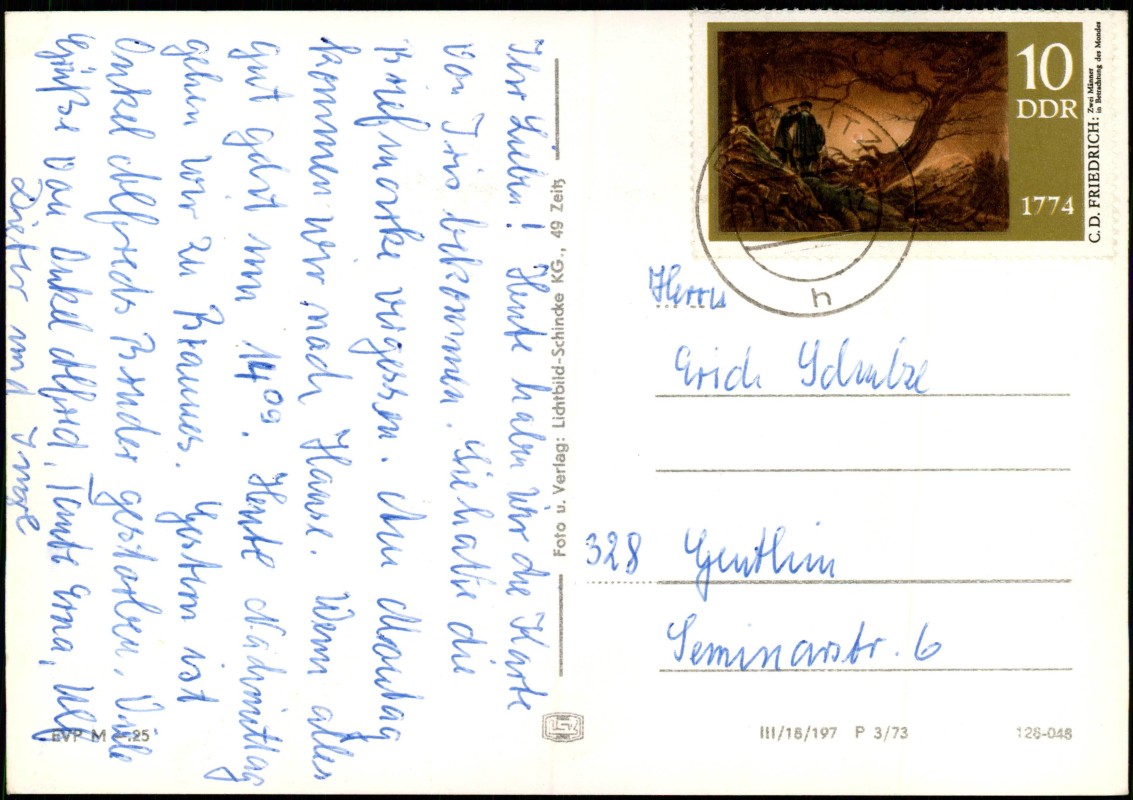 Ihr Lieben! Heute haben wir die Karte
von Iris bekommen. Sie hatte die
Briefmarke vergessen. Am Montag
kommen wir nach Hause. Wenn alles
gut geht um 14⁰⁹. Heute Nachmittag
gehen wir zu Braunes. Gestern ist
Onkel Alfreds Bruder gestorben. Viele
Grüße von Onkel Alfred, Tante Erna, Ulf
Dieter und Inge
EVP M -.25
Foto u. Verlag: Lichtbild-Schincke KG., 49 Zeitz
10
DDR
1774
C. D. FRIEDRICH: Zwei Männer
in Betrachtung des Mondes
h
Herrn
Erich Schulze
328 Genthin
Seminarstr. 6
III/18/197 P 3/73
128-048